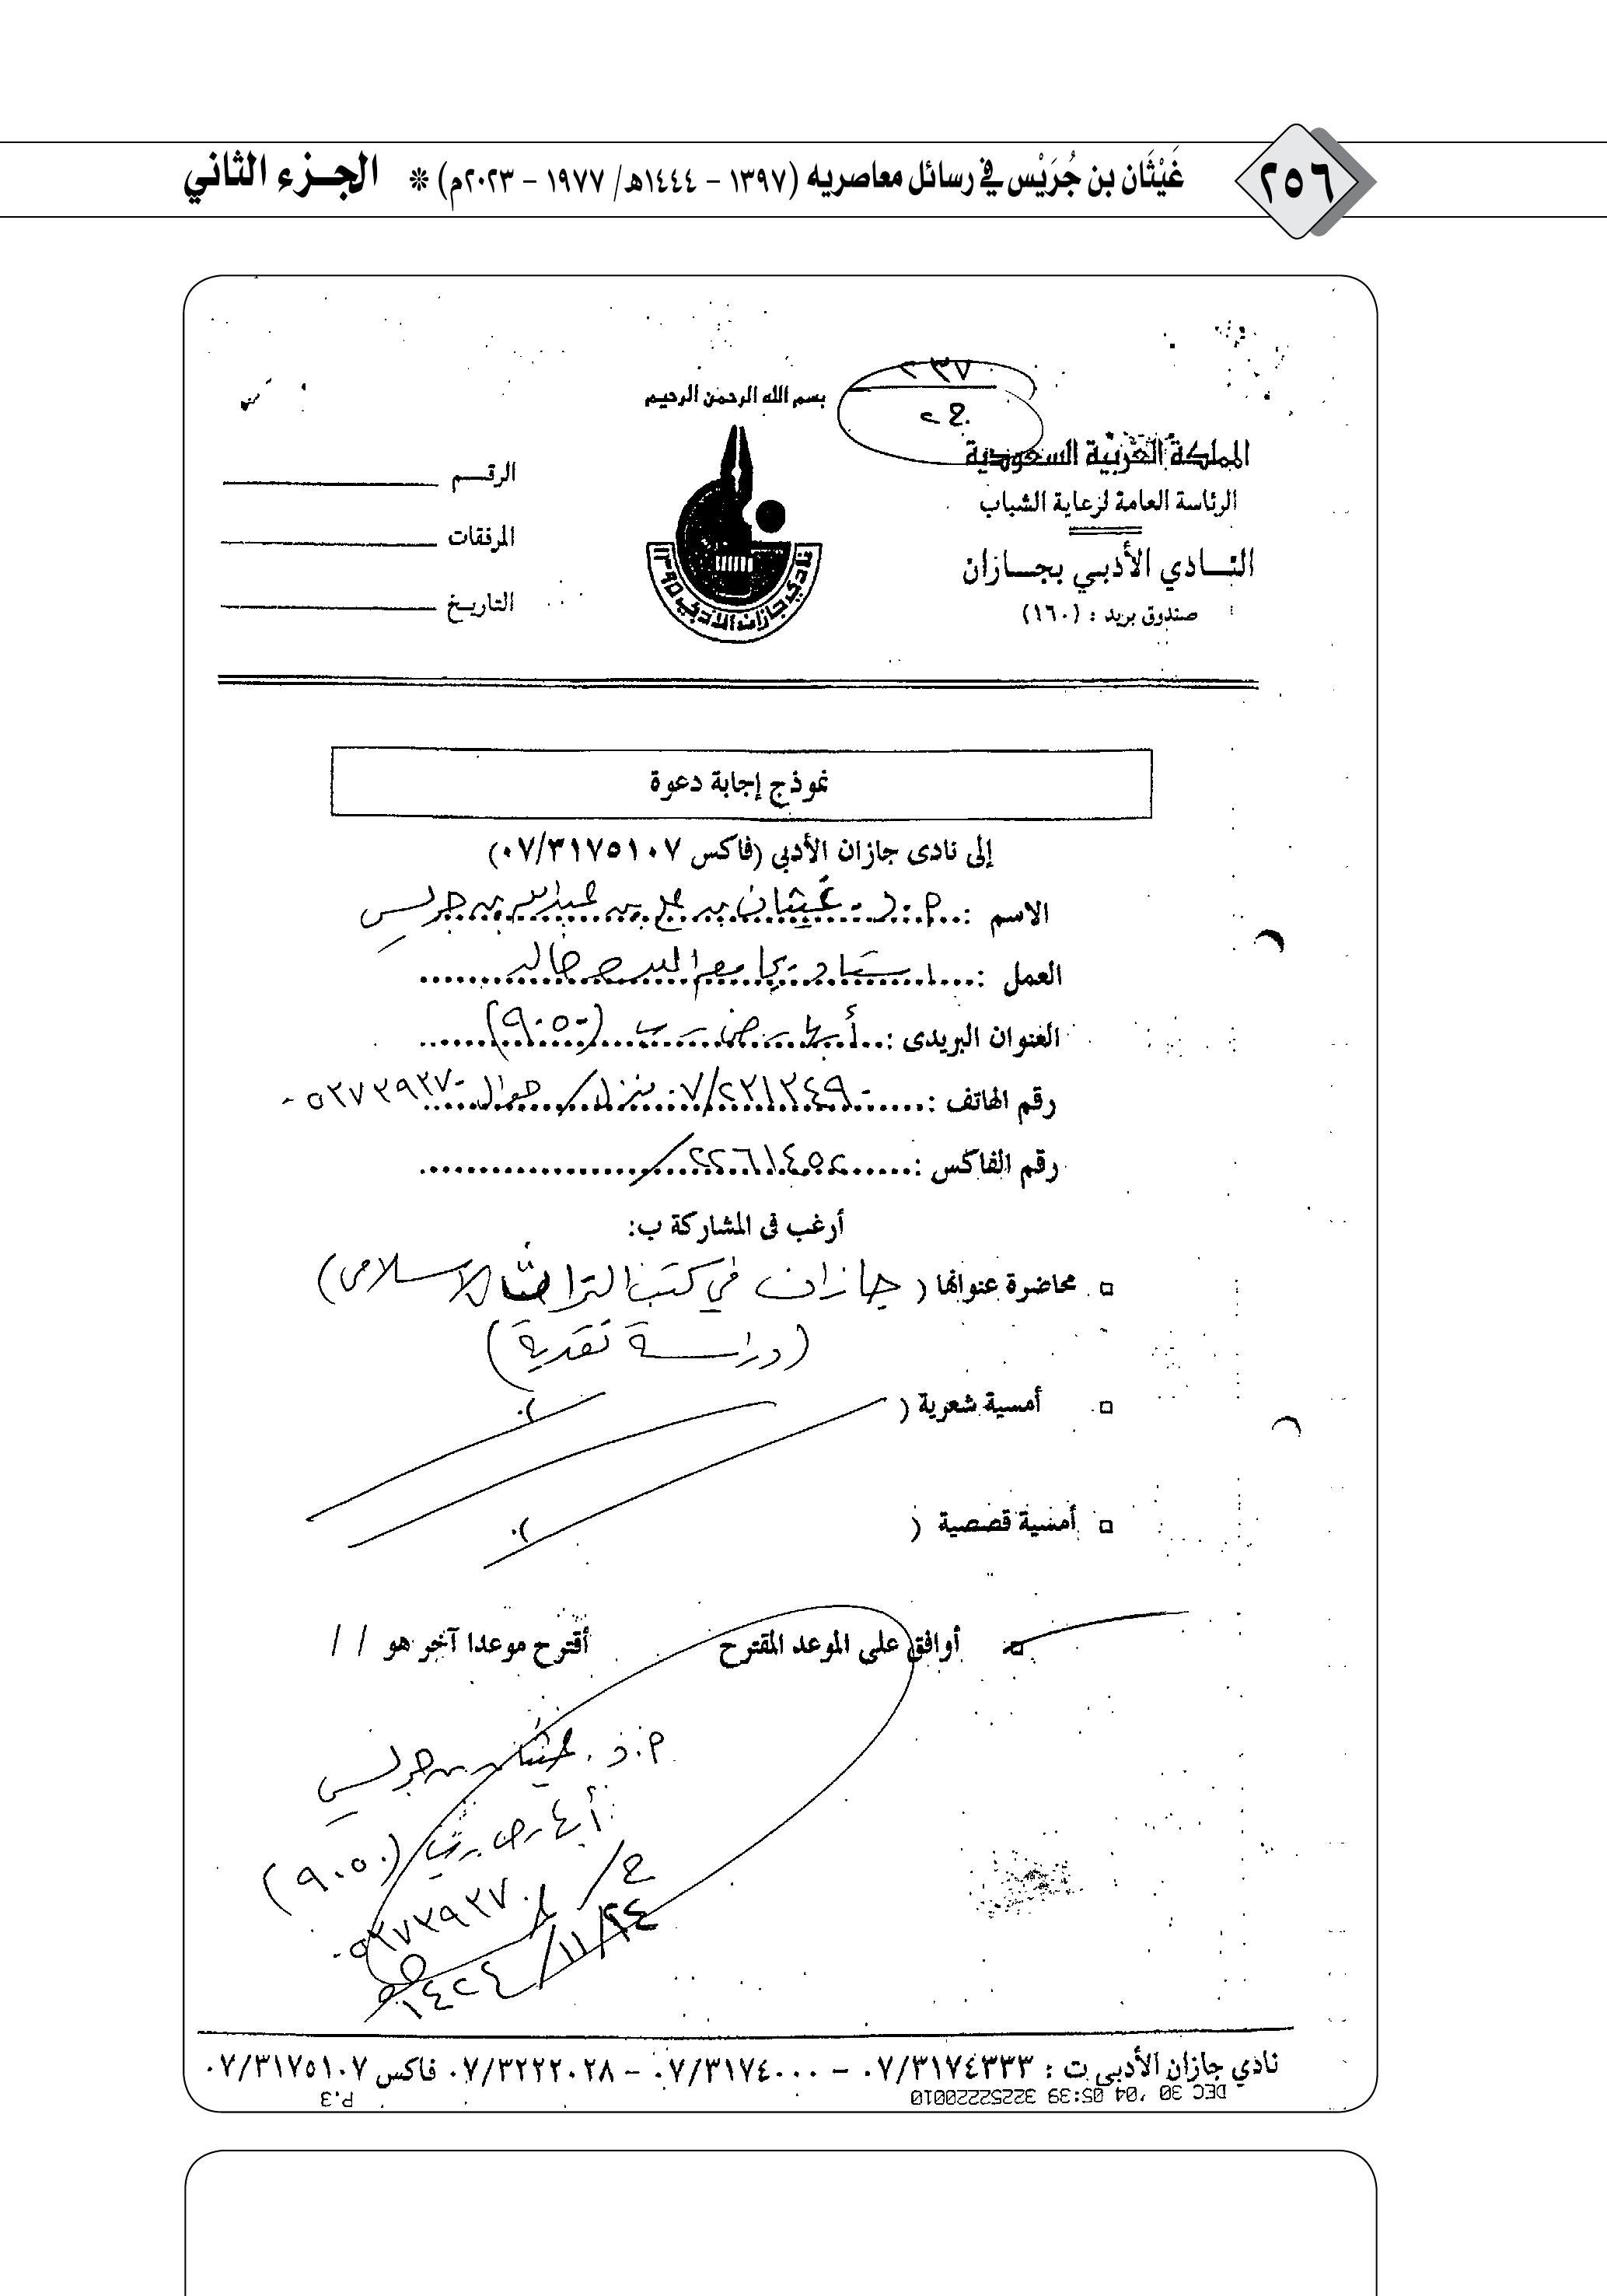 ٢٥٦
غَيْثَان بن جُرَيْس في رسائل معاصريه (١٣٩٧ - ١٤٤٤هـ/ ١٩٧٧ - ٢٠٢٣م) * الجـزء الثاني
بسم الله الرحمن الرحيم
المملكة العربية السعودية
الرئاسة العامة لرعاية الشباب
النـادي الأدبـي بجـازان
صندوق بريد : (١٦٠)
نادي جازان الأدبي ١٣٩٥
الرقـم
المرفقات
التاريـخ
نموذج إجابة دعوة
إلى نادى جازان الأدبي (فاكس ٠٧/٣١٧٥١٠٧)
الاسم : م.د. غيثان بن علي بن عبدالله بن جريس
العمل : استاذ بجامعة الملك خالد
العنوان البريدى : أبها ـ ص ـ ب (٩٠٥٠)
رقم الهاتف : ٠٧/٢٢١٢٤٩٠ منزل / جوال
رقم الفاكس : ٢٢٦١٤٥٢ /
أرغب فى المشاركة ب:
محاضرة عنوانها ( جازان في كتب التراث الإسلامي )
(دراسة نقدية)
أمسية شعرية ( ).
أمسية قصصية ( ).
أوافق على الموعد المقترح
أقترح موعدا آخر هو / /
م.د. غيثان بن جريس
أبها ص.ب (٩٠٥٠)
١٤٢٤/١١/٢٤
نادي جازان الأدبى ت : ٠٧/٣١٧٤٣٣٣ - ٠٧/٣١٧٤٠٠٠ - ٠٧/٣٢٢٢٠٢٨ فاكس ٠٧/٣١٧٥١٠٧
DEC 30 '04 05:39 322522220010
P.3